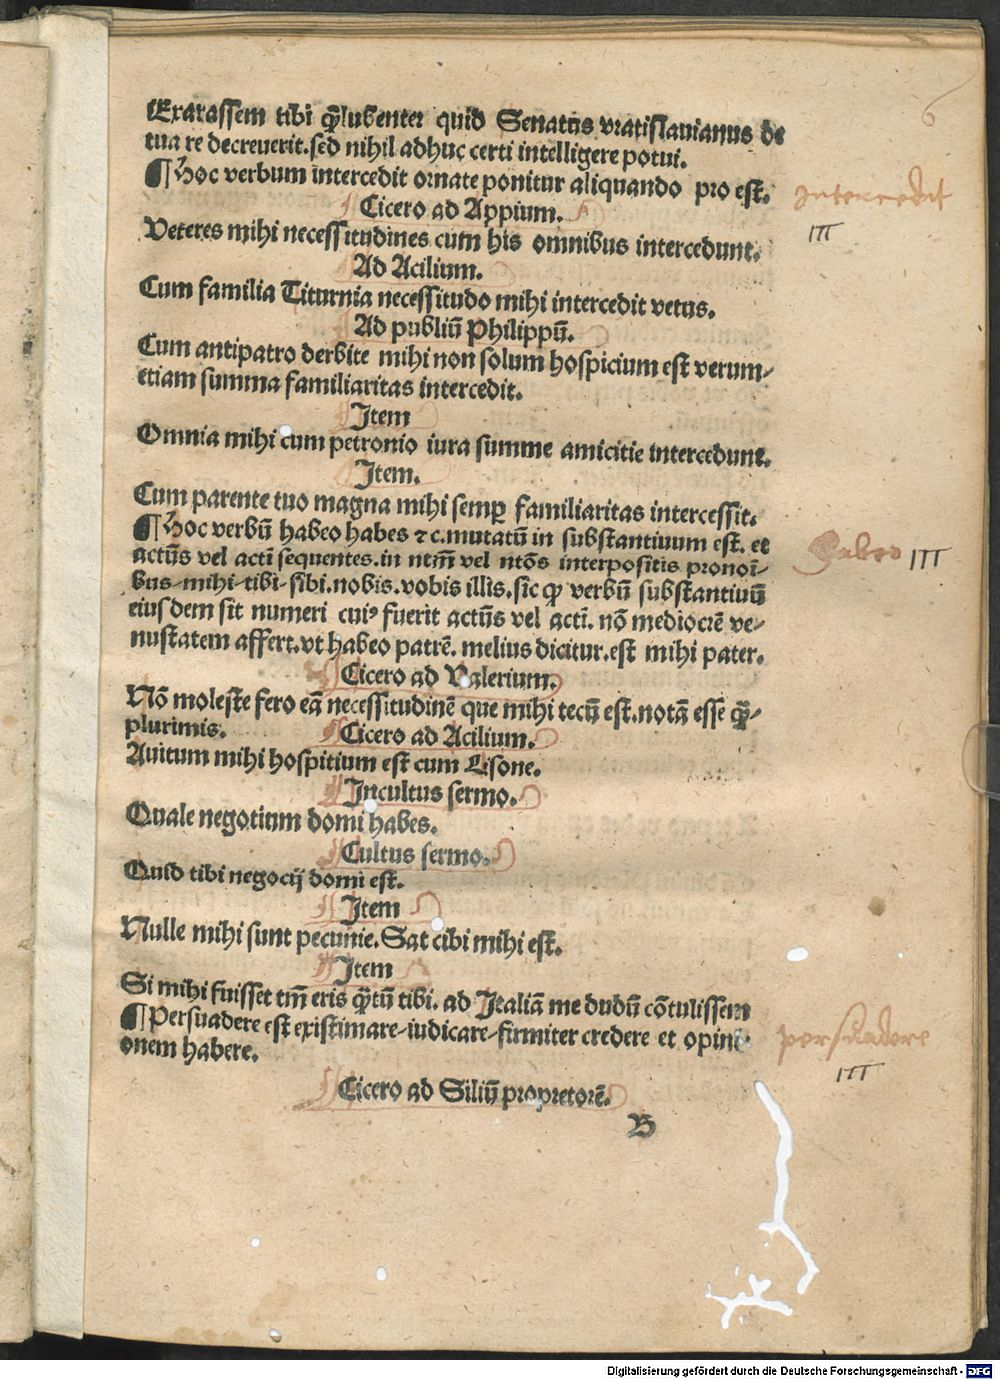 6
Exarassem tibi q̄lubenter quid Senatus vratislauianus de
tua re decreuerit. sed nihil adhuc certi intelligere potui.
¶ Hoc verbum intercedit ornate ponitur aliquando pro est.
intercedit
III
Cicero ad Appium.
Veteres mihi necessitudines cum his omnibus intercedunt.
Ad Acilium.
Cum familia Titurnia necessitudo mihi intercedit vetus.
Ad publiū Philippū.
Cum antipatro derbite mihi non solum hospicium est verum-
etiam summa familiaritas intercedit.
Item
Omnia mihi cum petronio iura summe amicitie intercedunt.
Item.
Cum parente tuo magna mihi semꝑ familiaritas intercessit.
¶ Hoc verbū habeo habes ⁊c. mutatū in substantiuum est. et
actūs vel acti sequentes. in ntm̄ vel ntōs interpositis pronoī-
bus-mihi-tibi-sibi. nobis. vobis illis. sic ꝙ verbū substantiuū
eiusdem sit numeri cuiꝰ fuerit actūs vel acti. nō mediocrē ve-
nustatem affert. vt habeo patrē. melius dicitur. est mihi pater.
habeo III
Cicero ad Valerium.
Nō moleste fero eā necessitudinē que mihi tecū est. notā esse q̄-
plurimis. Cicero ad Acilium.
Auitum mihi hospitium est cum Lisone.
Incultus sermo.
Quale negotium domi habes.
Cultus sermo.
Quid tibi negocij domi est.
Item
Nulle mihi sunt pecunie. Sat cibi mihi est.
Item
Si mihi fuisset tm̄ eris q̄tū tibi. ad Italiā me dudū cōtulissem
¶ Persuadere est existimare-iudicare-firmiter credere et opini-
onem habere.
persuadere
III
Cicero ad Siliū propretorē.
B
Digitalisierung gefördert durch die Deutsche Forschungsgemeinschaft - DFG